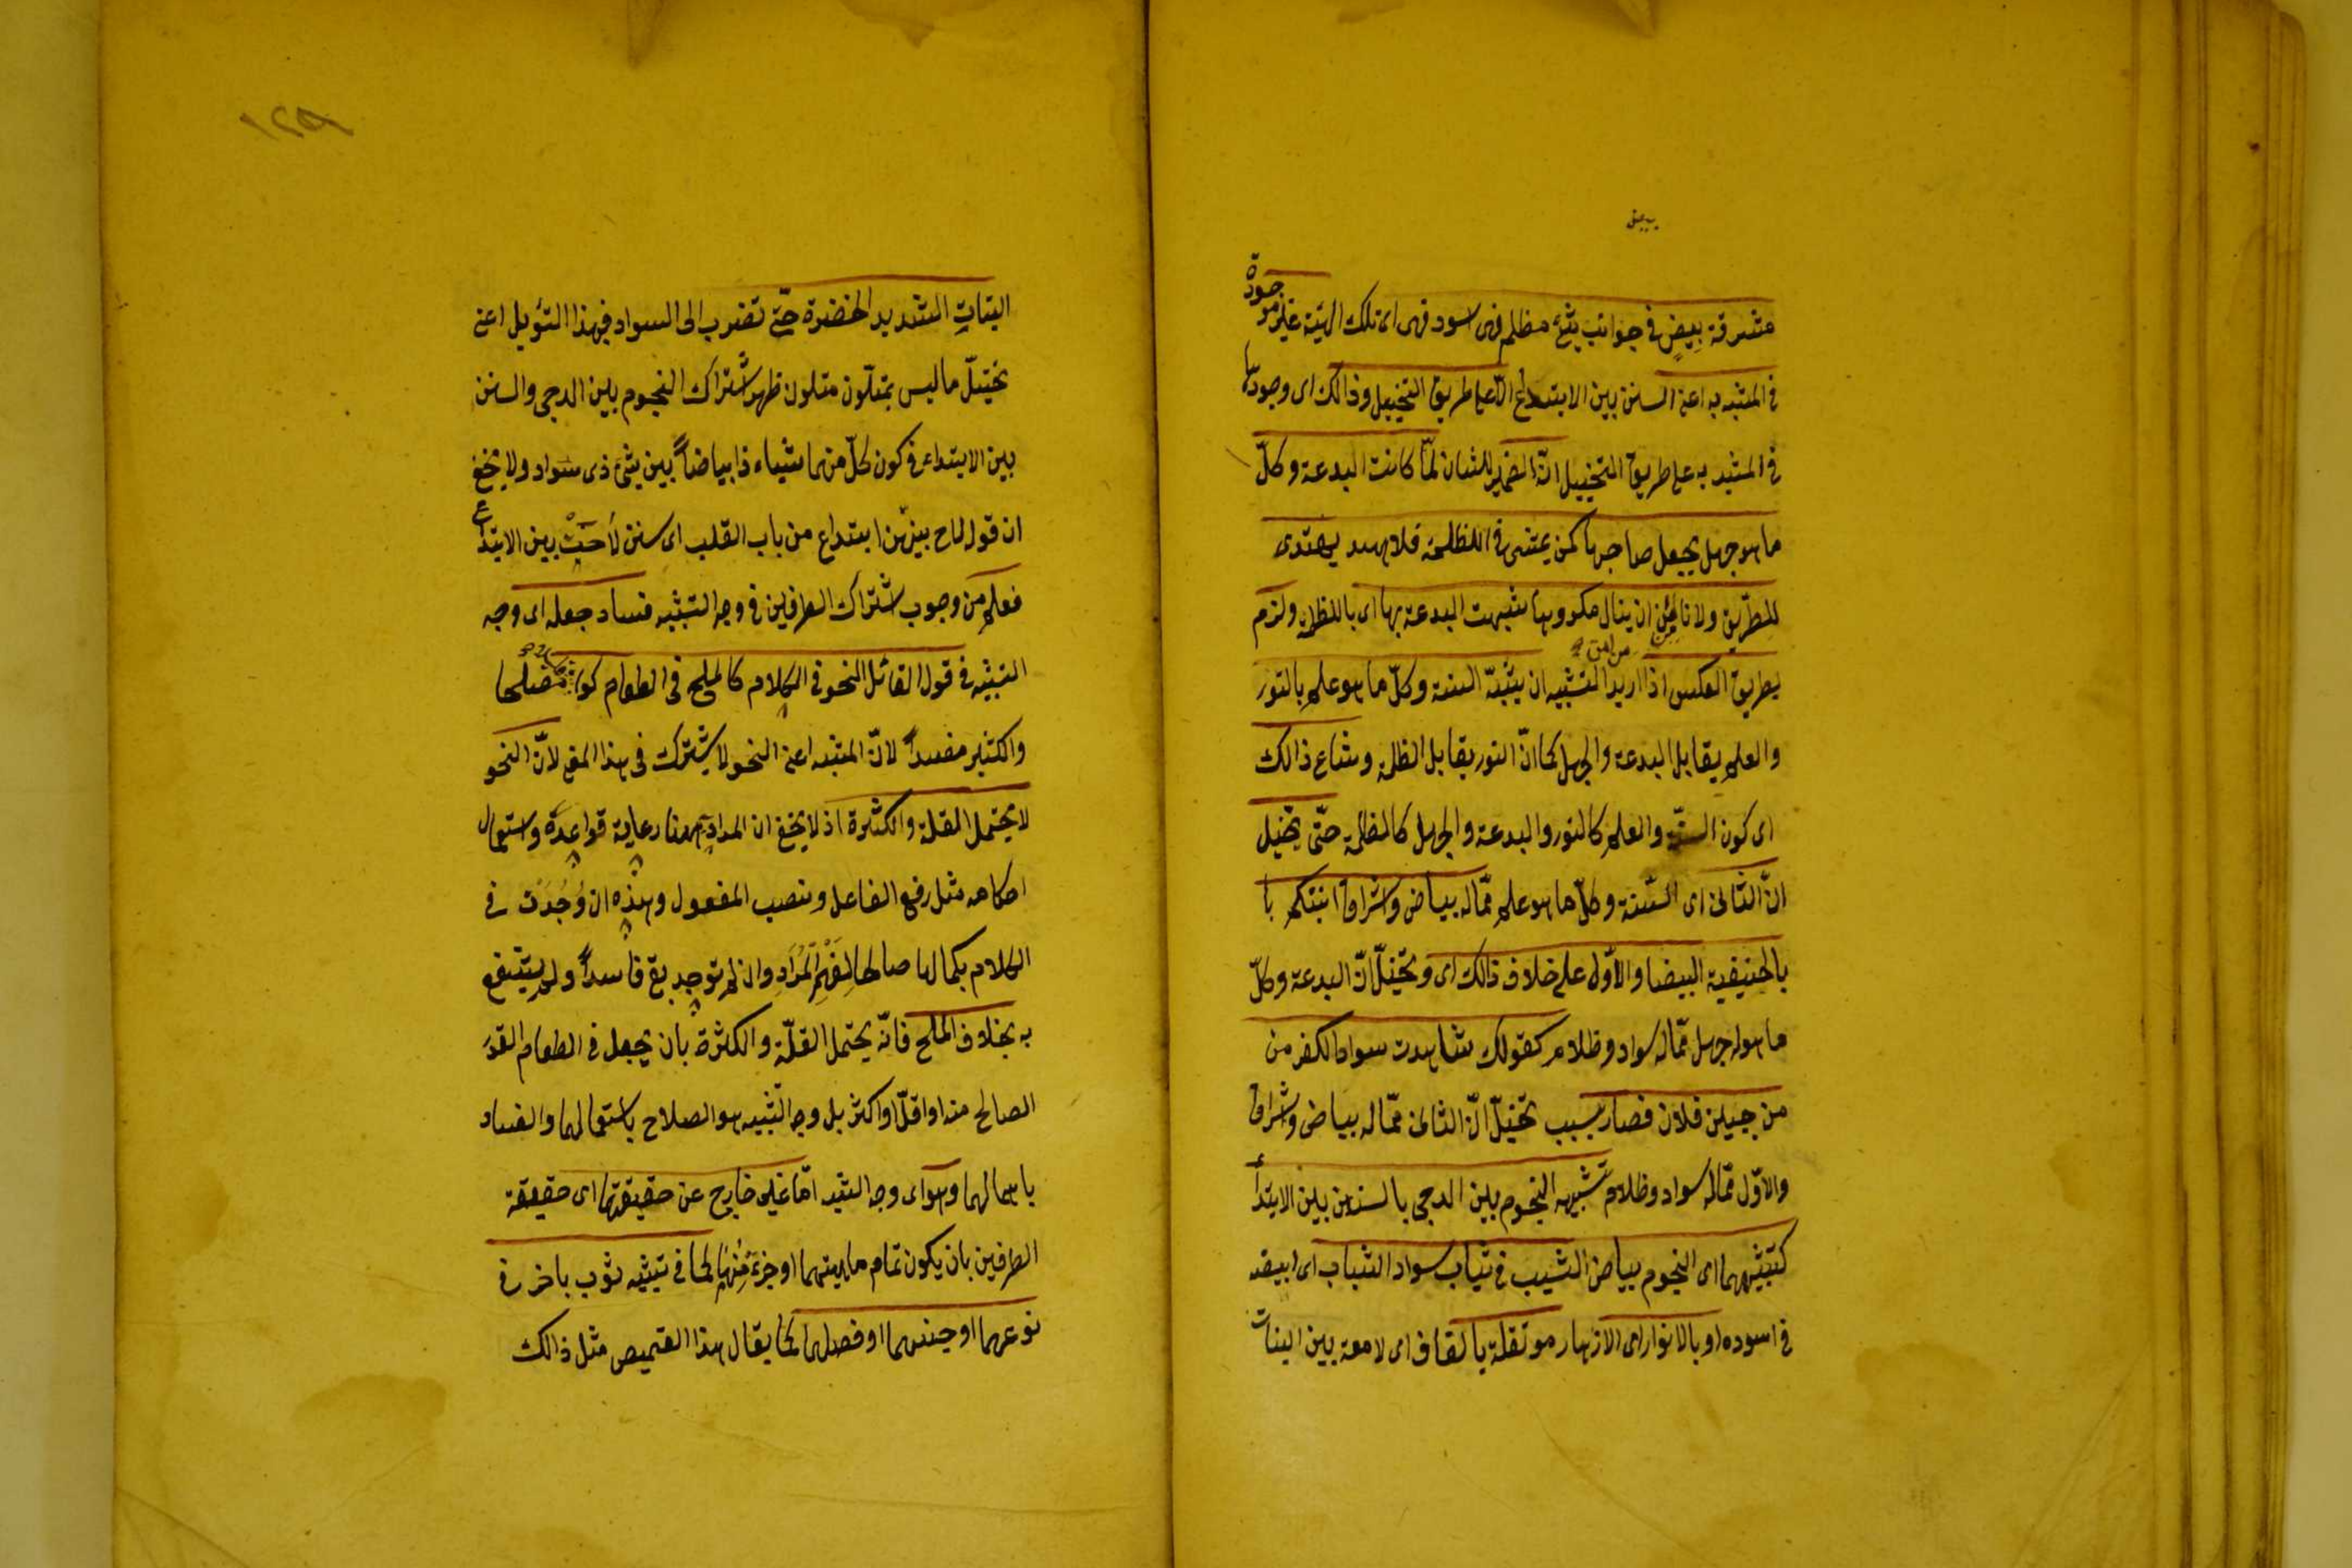 مشرقة بيض في جوانب شئ مظلم فهى اسود فهى اى تلك الهيئة غير موجودة
في المشبه به اعنى السنن بين الابتداع الا على طريق التخييل وذالك اى وجودها
في المشبه به على طريق التخييل انّ الضمير للشان لمّا كانت البدعة وكلّ
ما هو جهل يجعل صاحبها كمن يمشى في الظلمة فلا يهتدى
للطريق ولا يأمن من ان ينال مكروها شبهت البدعة بها اى بالظلمة ولزم
بطريق العكس اذا اريد التشبيه ان يشبّه السنة وكلّ ما هو علم بالنور
والعلم يقابل البدعة والجهل كما انّ النور يقابل الظلمة وشاع ذالك
اى كون السنّة والعلم كالنور والبدعة والجهل كالظلمة حتّى تخيّل
انّ الثانى اى السّنة وكلّ ما هو علم ممّا له بياض واشراق اتيتكم با
بالحنيفية البيضا والاوّل على خلاف ذالك اى وتخيّل انّ البدعة وكلّ
ما هو له جهل ممّا له سواد وظلام كقولك شاهدت سواد الكفر من
من جبين فلان فصار بسبب تخيّل انّ الثانى ممّا له بياض واشراق
والاوّل ممّا له سواد وظلام تشبيه النجوم بين الدجى بالسنن بين الابتداع
كتشبيهها اى النجوم بياض الشيب في ثياب سواد الشباب اى ابيضه
في اسوده او بالانوار اى الازهار موتقلة بالقاف اى لامعة بين النبات
١٢٩
النبات الشديد الخضرة حتّى تضرب الى السواد فبهذا التؤيل اعنى
تخيّل ما ليس بمتلّون متلون ظهر اشتراك النجوم بين الدجى والسنن
بين الابتداع في كون كلّ منهما شياء ذا بياضاً بين شئ ذى سواد ولا يخفى
ان قوله لاح بينهن ابتداع من باب القلب اى سنن لاحت بين الابتداع
فعلم من وجوب اشتراك الطرفين في وجه التشبيه فساد جعله اى وجه
التشبيه في قول القائل النحو في الكلام كالملح في الطعام كون مصلحا
والكثير مفسداً لانّ المشبه اعنى النحو لا يشترك في هذا المعنى لانّ النحو
لا يحتمل القلة والكثرة اذ لا يخفى ان المراد به ههنا رعاية قواعده واستعمال
احكامه مثل رفع الفاعل ونصب المفعول وهذه ان وُجدت في
الكلام بكمالها صالحا لِفهم المراد وان لم توجد بقى فاسداً ولم ينتفع
به بخلاف الملح فانّه يحتمل القلّة والكثرة بان يجعل في الطعام القدر
الصالح منه او اقلّ او اكثر بل وجه التشبيه هو الصلاح باستعمالهما والفساد
باهمالهما وهو اى وجه الشبه امّا غير خارج عن حقيقتهما اى حقيقة
الطرفين بان يكون تمام ماهيتهما او جزء منهما كما في تشبيه ثوب باخر في
نوعهما او جنسهما او فصلهما كما يقال هذا القميص مثل ذالك